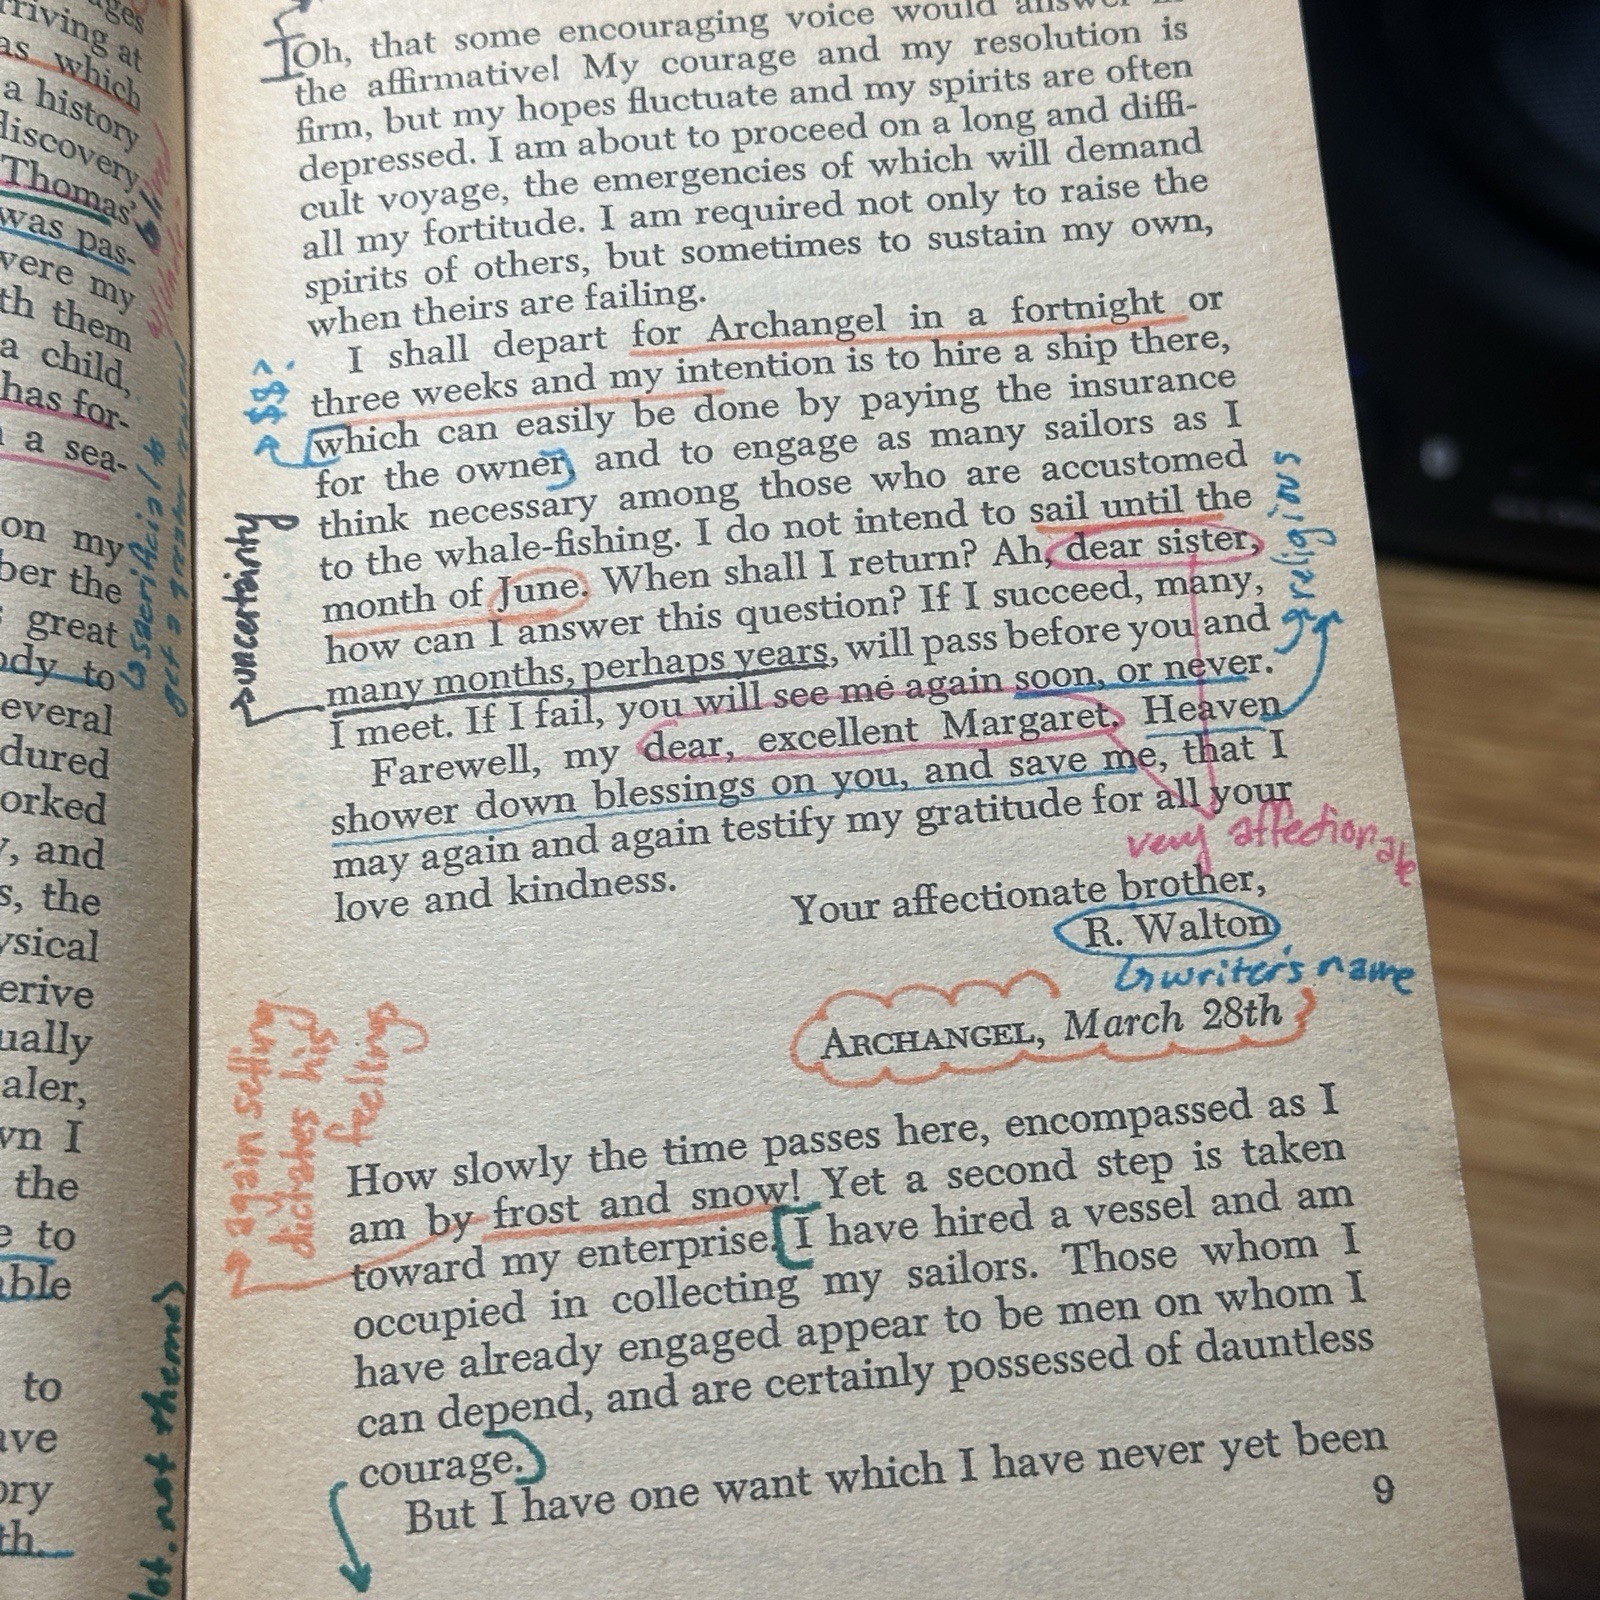 ages
rriving at
as which
a history
discovery
Thomas'
was pas-
were my
th them
a child,
has for-
a sea-
on my
ber the
great
ody to
everal
dured
orked
y, and
s, the
ysical
erive
ually
aler,
wn I
the
e to
able
to
ave
ory
th.
sacrificial
not theme)
Oh, that some encouraging voice would answer in
the affirmative! My courage and my resolution is
firm, but my hopes fluctuate and my spirits are often
depressed. I am about to proceed on a long and diffi-
cult voyage, the emergencies of which will demand
all my fortitude. I am required not only to raise the
spirits of others, but sometimes to sustain my own,
when theirs are failing.
I shall depart for Archangel in a fortnight or
three weeks and my intention is to hire a ship there,
which can easily be done by paying the insurance
for the owner, and to engage as many sailors as I
think necessary among those who are accustomed
to the whale-fishing. I do not intend to sail until the
month of June. When shall I return? Ah, dear sister,
how can I answer this question? If I succeed, many,
many months, perhaps years, will pass before you and
I meet. If I fail, you will see me again soon, or never.
Farewell, my dear, excellent Margaret. Heaven
shower down blessings on you, and save me, that I
may again and again testify my gratitude for all your
love and kindness.
$$$
uncertainty
religious
very affectionate
Your affectionate brother,
R. Walton
writer's name
ARCHANGEL, March 28th
again setting
dictates his
feeling
How slowly the time passes here, encompassed as I
am by frost and snow! Yet a second step is taken
toward my enterprise. I have hired a vessel and am
occupied in collecting my sailors. Those whom I
have already engaged appear to be men on whom I
can depend, and are certainly possessed of dauntless
courage.
But I have one want which I have never yet been
9